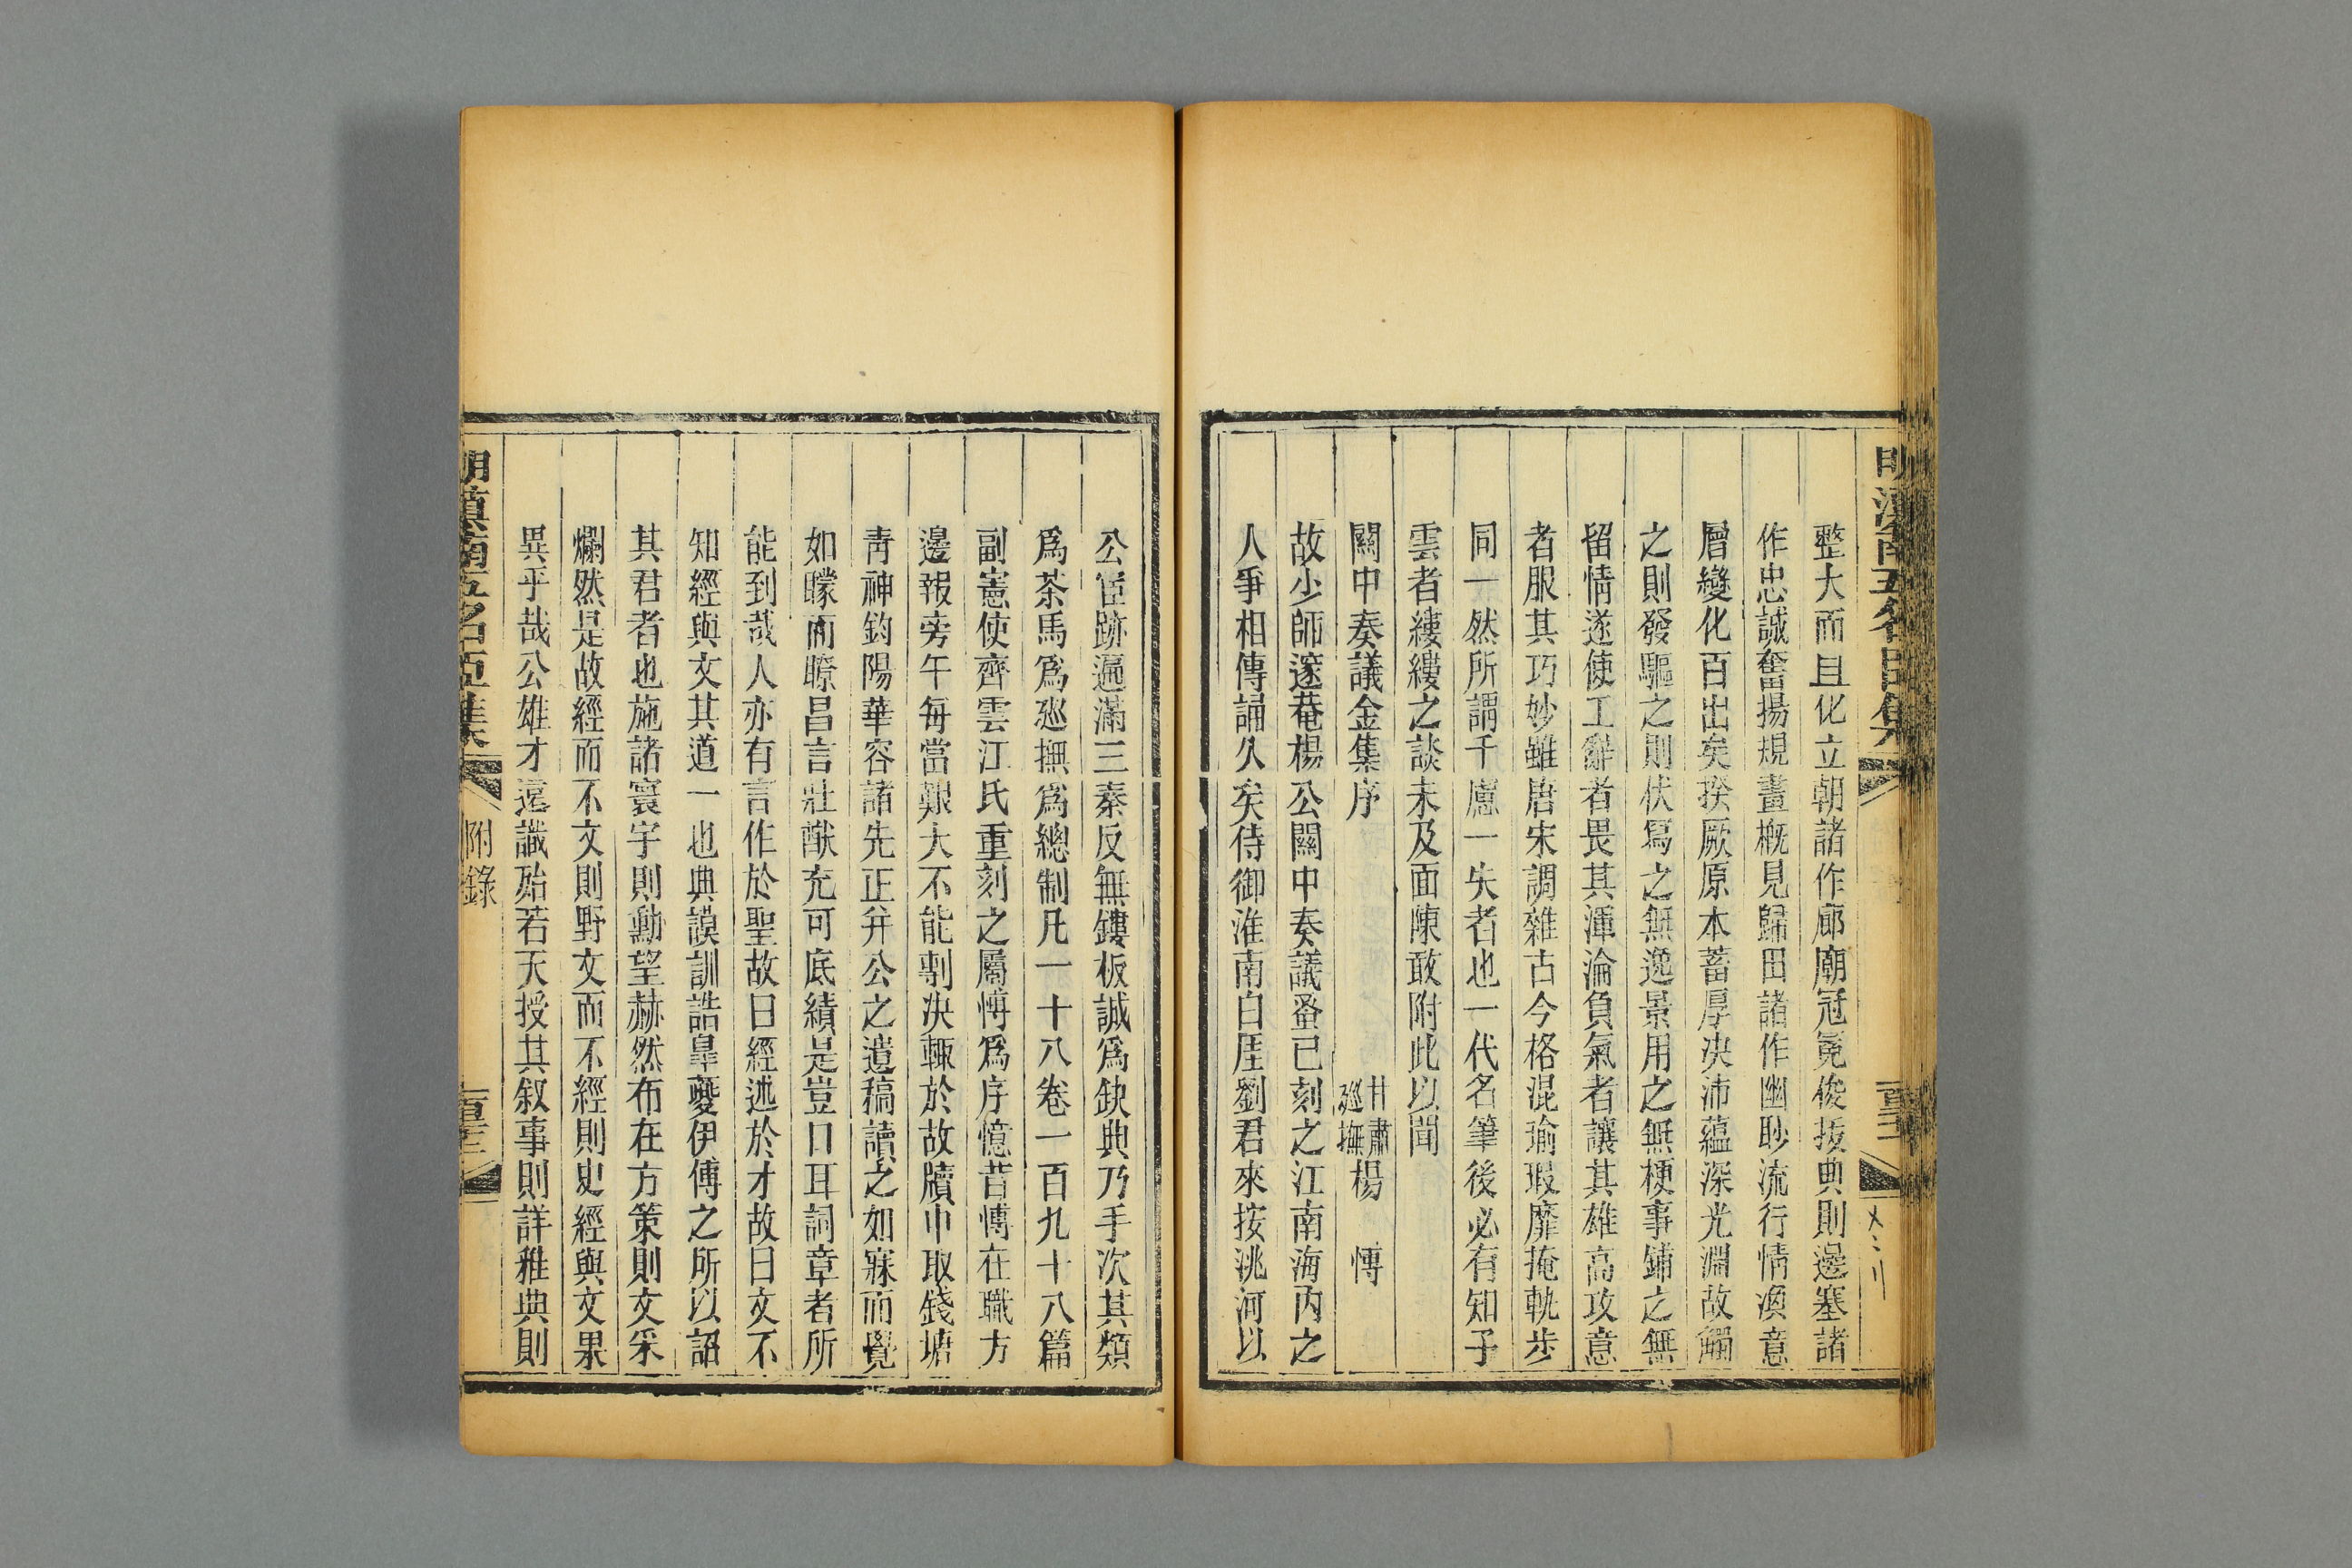 明滇南五名臣集
整大而且化立朝諸作廊廟冠冕俊拔典則邊塞諸
作忠誠奮揚規畫概見歸田諸作幽眇流行情渙意
層變化百出矣揆厥原本蓄厚決沛蘊深光淵故觸
之則發驅之則伏寫之無逸景用之無梗事鋪之無
留情遂使工辭者畏其渾淪負氣者讓其雄高攻意
者服其巧妙雖唐宋調雜古今格混瑜瑕靡掩軌步
同一然所謂千慮一失者也一代名筆後必有知子
雲者縷縷之談未及面陳敢附此以聞
關中奏議金集序 甘肅巡撫楊 愽
故少師邃菴楊公關中奏議蚤已刻之江南海內之
人爭相傳誦久矣侍御淮南白厓劉君來按洮河以
公宦跡遍滿三秦反無鏤板誠爲缺典乃手次其類
爲茶馬爲廵撫爲總制凡一十八卷一百九十八篇
副憲使齊雲江氏重刻之屬愽爲序憶昔愽在職方
邊報旁午每當艱大不能剸決輒於故牘中取錢塘
靑神鈞陽華容諸先正并公之遺稿讀之如寐而覺
如矇而瞭昌言壯猷充可底績是豈口耳詞章者所
能到哉人亦有言作於聖故曰經述於才故曰文不
知經與文其道一也典謨訓誥臯夔伊傅之所以詔
其君者也施諸寰宇則勳望赫然布在方策則文采
爛然是故經而不文則野文而不經則史經與文果
異乎哉公雄才遠識殆若天授其叙事則詳雅典則
明滇南五名臣集
附錄